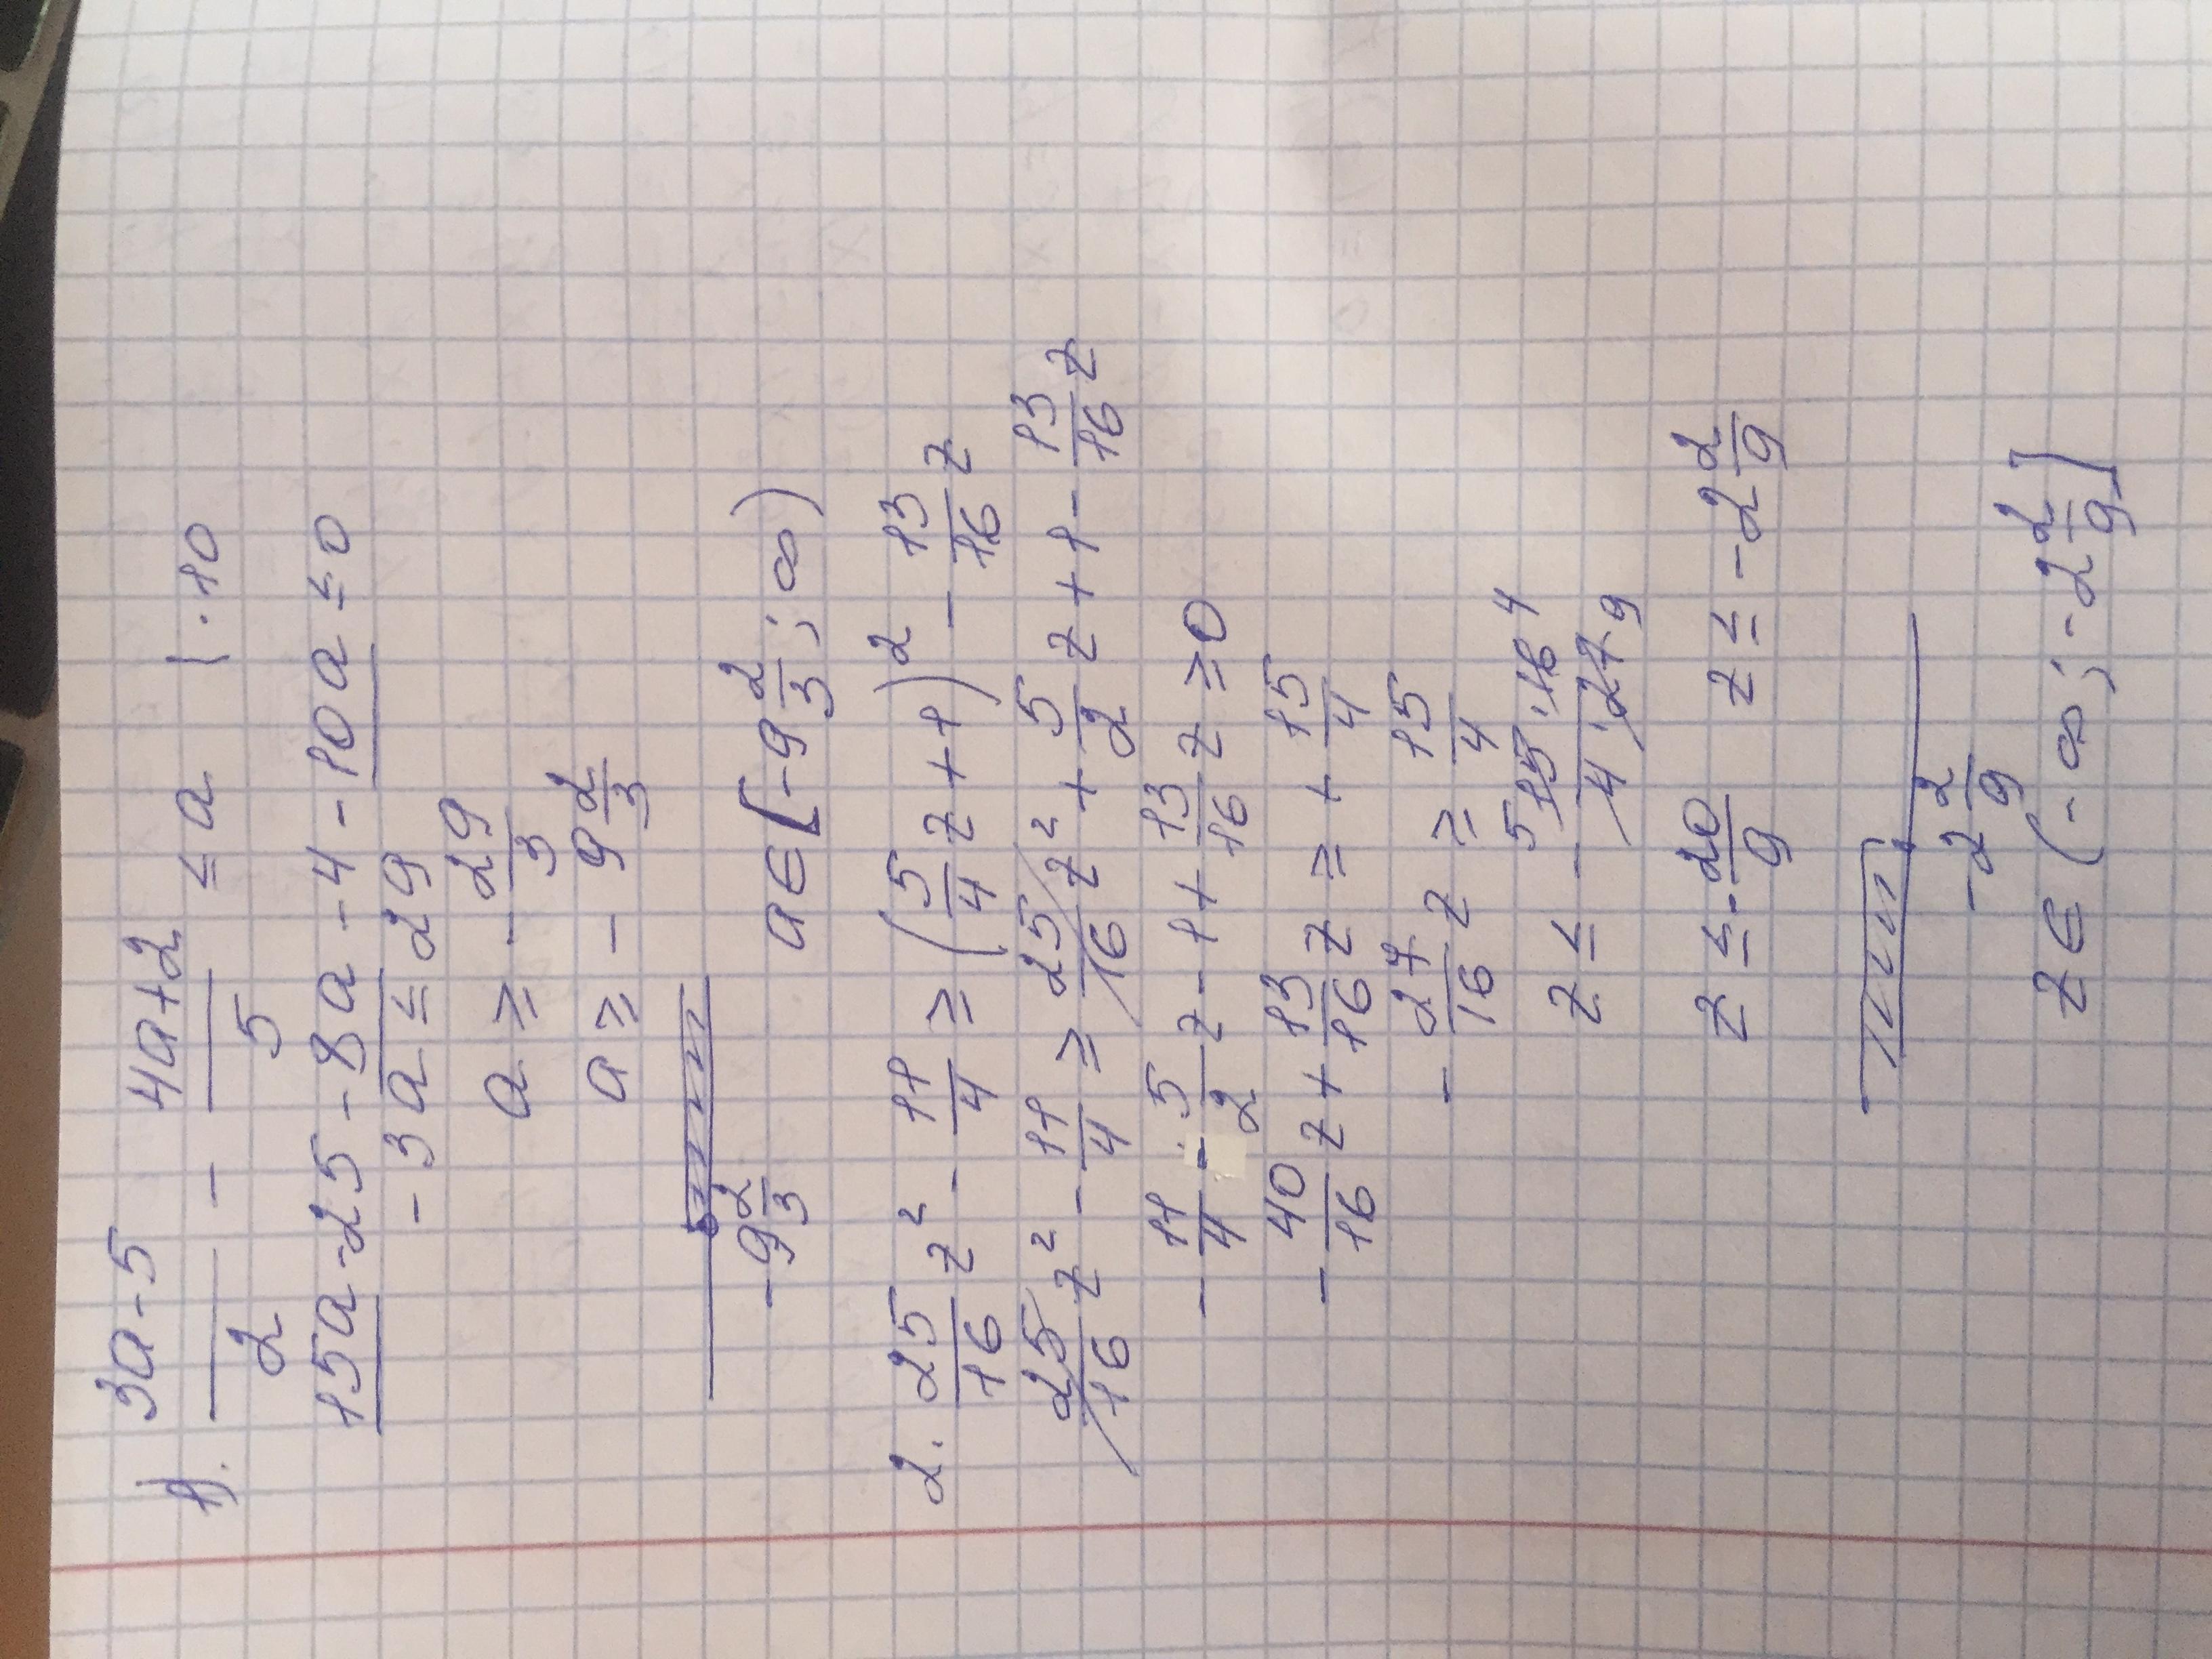 1). (3a-5)/2 - (4a+2)/5 ≤ a | ·10
15a-25-8a-4-10a≤0
-3a≤29
a≥-29/3
a≥-9 2/3
-9 2/3
a∈[-9 2/3; ∞)
2. 25/16 z² - 11/4 ≥ (5/4 z+1)² - 13/16 z
25/16 z² - 11/4 ≥ 25/16 z² + 5/2 z+1- 13/16 z
- 11/4 - 5/2 z-1+ 13/16 z≥0
- 40/16 z+ 13/16 z≥+ 15/4
- 27/16 z ≥ 15/4
z≤ - 5 15·16 4 / 4·27 9
z≤- 20/9 z≤-2 2/9
-2 2/9
z∈(-∞;-2 2/9]